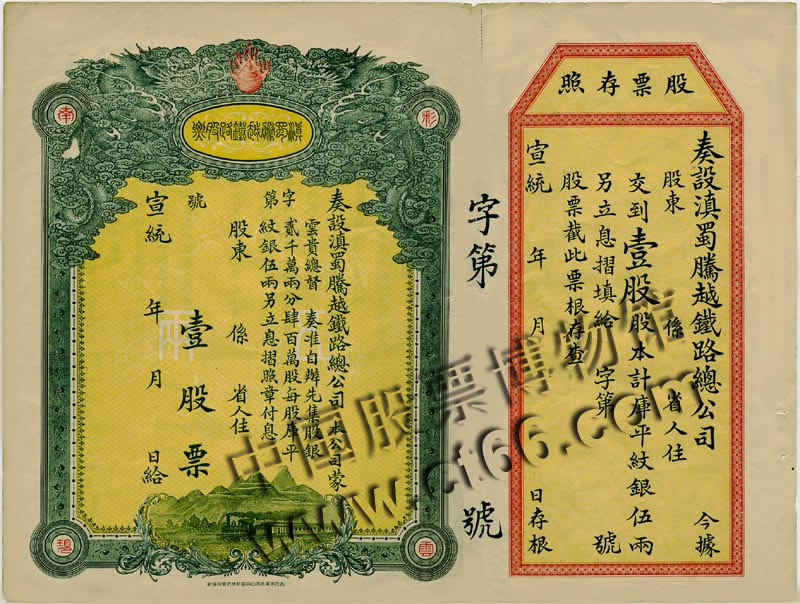 滇蜀騰越鐵路股票
南
彩
碧
雲
奏設滇蜀騰越鐵路總公司 本公司蒙
雲貴總督 奏准自辦先集股銀
貳千萬兩分肆百萬股每股庫平
紋銀伍兩另立息摺照章付息
股東 係 省人住
字第 號
壹股票
宣統 年 月 日給
字第 號
股票存照
奏設滇蜀騰越鐵路總公司 今據
股東 係 省人住
交到壹股股本計庫平紋銀伍兩
另立息摺填給 字第 號
股票截此票根存查
宣統 年 月 日存根
中國股票博物館
www.cf66.com